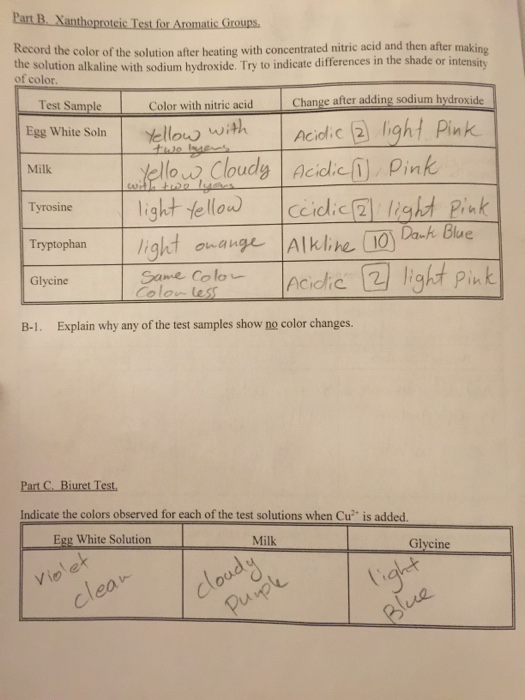 Part B. Xanthoproteic Test for Aromatic Groups.
Record the color of the solution after heating with concentrated nitric acid and then after making
the solution alkaline with sodium hydroxide. Try to indicate differences in the shade or intensity
of color.
Test Sample Color with nitric acid Change after adding sodium hydroxide
Egg White Soln Yellow with Acidic 2 light Pink
two layers
Milk Yellow Cloudy Acidic 1 Pink
with two lyers
Tyrosine light Yellow Ccidic 2 light Pink
Tryptophan light ouange Alkline 10 Dauk Blue
Glycine Same Color Acidic 2 light pink
Colorless
B-1. Explain why any of the test samples show no color changes.
Part C. Biuret Test.
Indicate the colors observed for each of the test solutions when Cu²⁺ is added.
Egg White Solution Milk Glycine
violet cloudy light
clear purple Blue